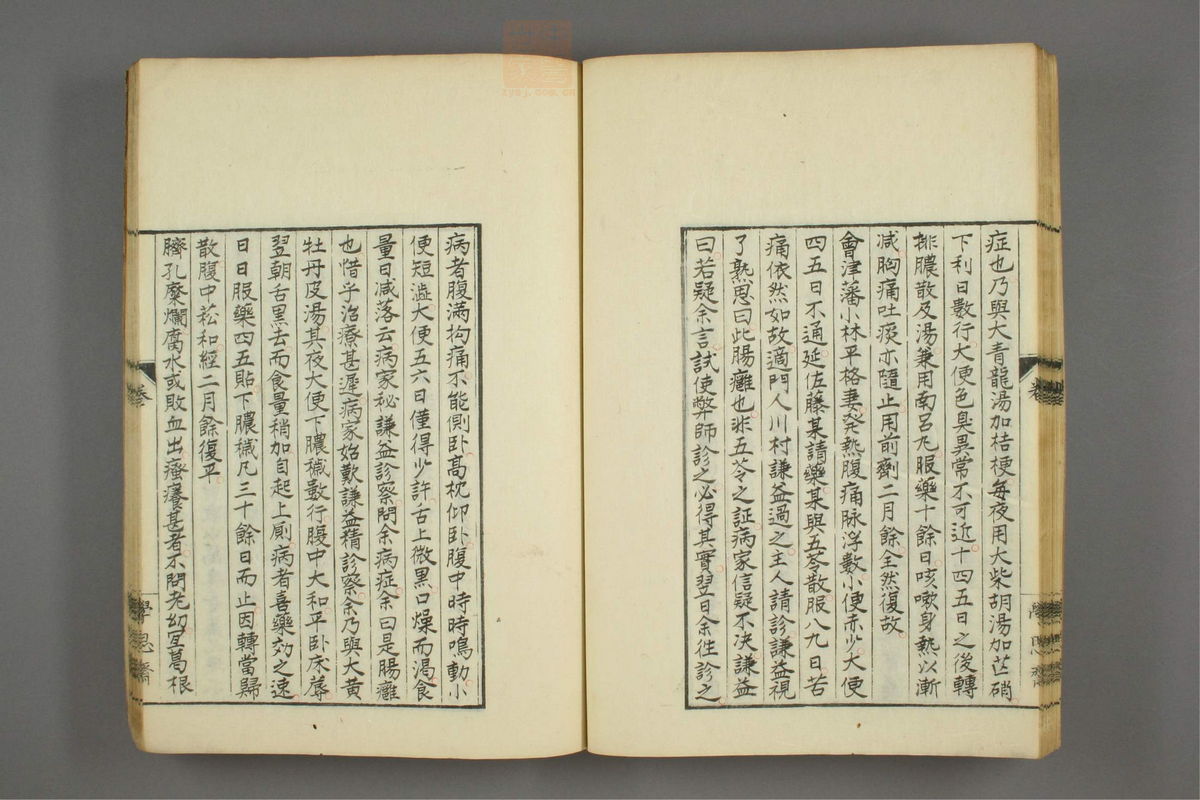 症也乃與大青龍湯加桔梗每夜用大柴胡湯加芒硝
下利日數行大便色臭異常不可近十四五日之後轉
排膿散及湯兼用南呂丸服藥十餘日咳嗽身熱以漸
減胸痛吐痰亦隨止用前劑二月餘全然復故
會津藩小林平格妻発熱腹痛脉浮數小便赤少大便
四五日不通延佐藤某請藥某與五苓散服八九日苦
痛依然如故適門人川村謙益過之主人請診謙益視
了熟思曰此腸癰也非五苓之証病家信疑不决謙益
曰若疑余言試使弊師診之必得其實翌日余往診之
病者腹満拘痛不能側卧高枕仰卧腹中時時鳴動小
便短澁大便五六日僅得少許舌上微黒口燥而渴食
量日减落云病家秘謙益診察問余病症余曰是腸癰
也惜乎治療甚遲病家始歎謙益精診察余乃與大黄
牡丹皮湯其夜大便下膿穢數行腹中大和平卧床蓐
翌朝舌黒去而食量稍加自起上厠病者喜藥効之速
日日服藥四五貼下膿穢凡三十餘日而止因轉當歸
散腹中菘和經二月餘復平
臍孔糜爛腐水或敗血出瘙癢甚者不問老幼冝葛根
學思齋
zysj.com.cn